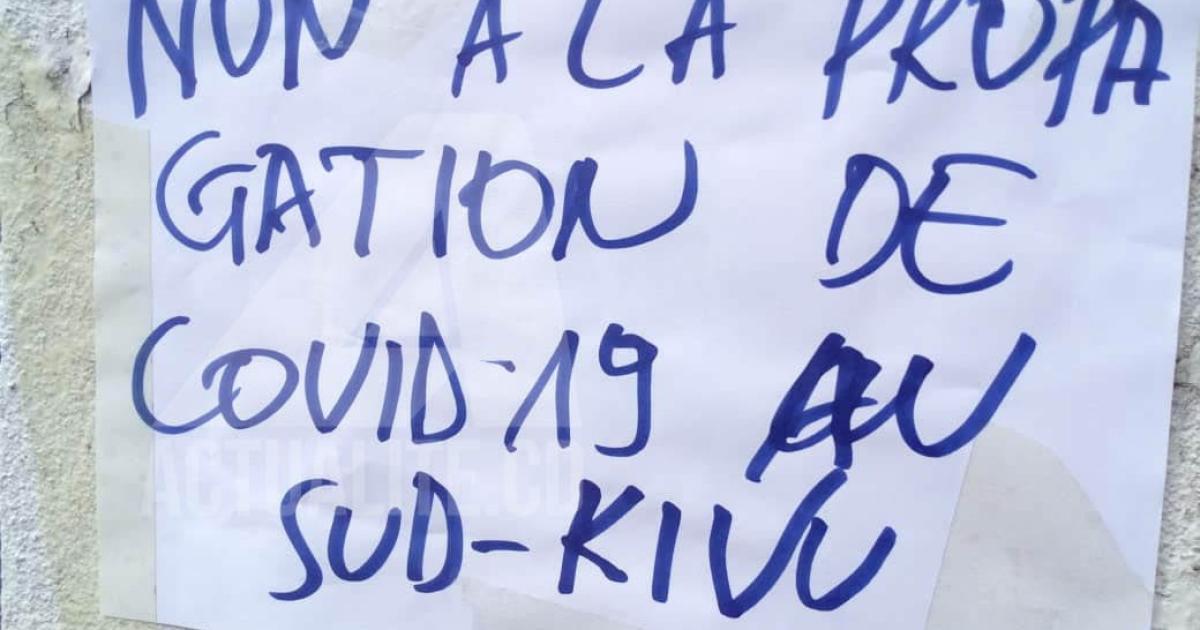 NON A LA PROPA
GATION DE
COVID-19 AU
ACTUALITE.CD
SUD-KIVU